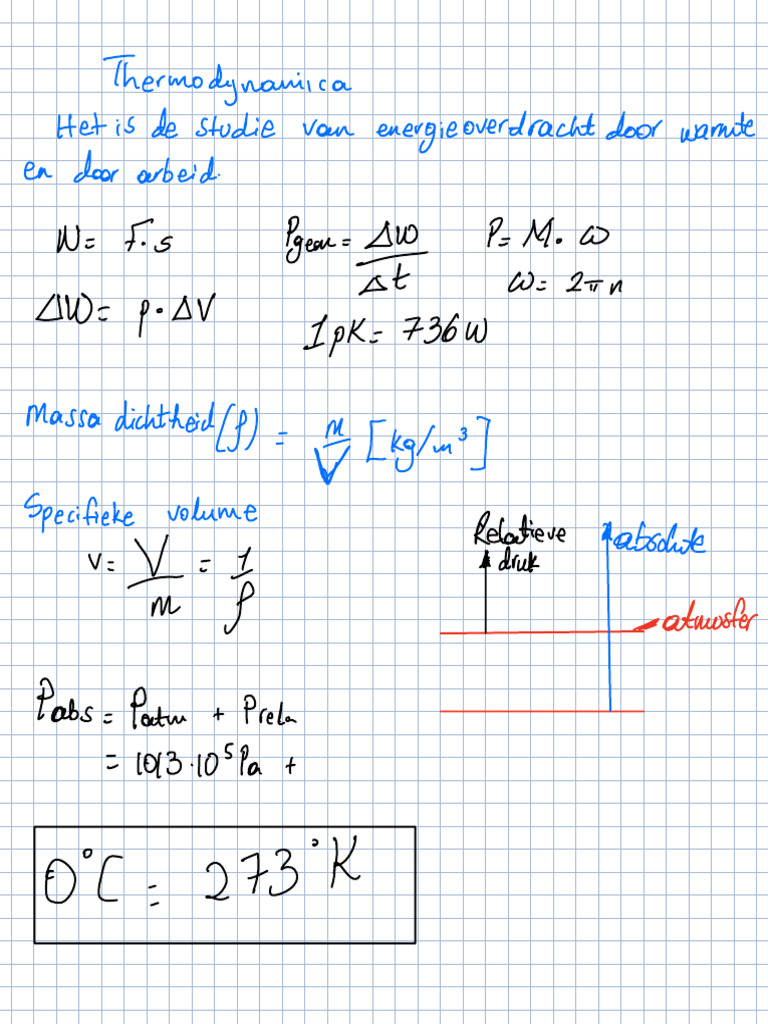 Thermodynamica
Het is de studie van energieoverdracht door warmte
en door arbeid.
W = F·s
Pgem = ΔW/Δt
P = M·ω
ω = 2πn
ΔW = p·ΔV
1pK = 736W
Massa dichtheid (ρ) = m/V [kg/m³]
Specifieke volume
v = V/m = 1/ρ
Relatieve
druk
absolute
atmosfer
Pabs = Patm + Prela
= 1013·10⁵Pa +
0°C = 273°K